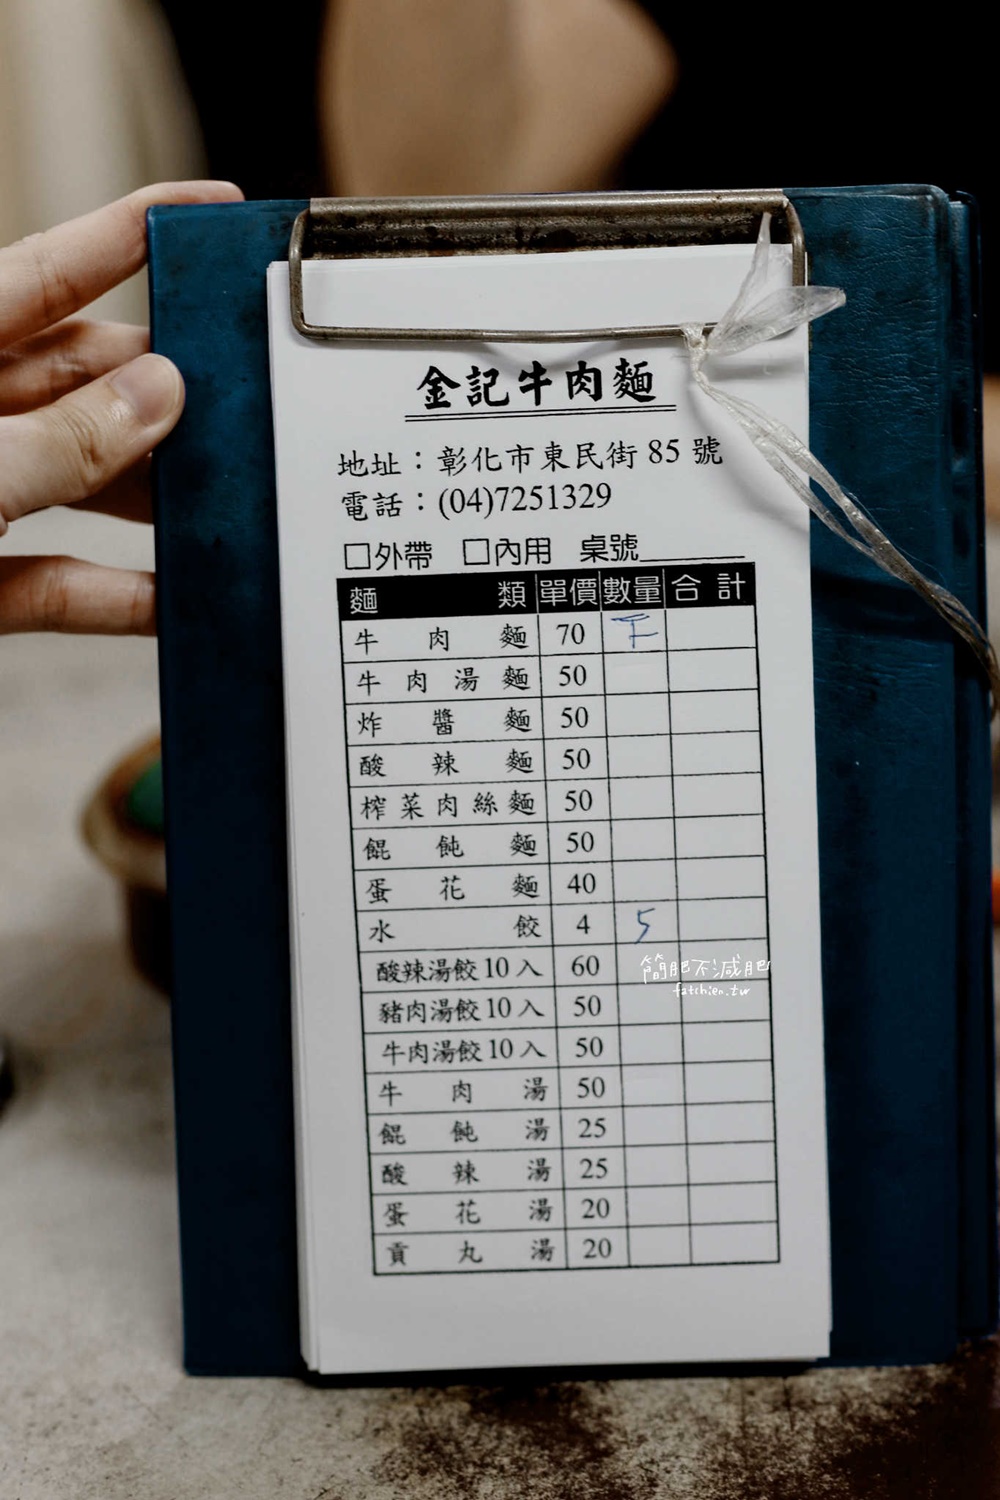 金記牛肉麵
地址：彰化市東民街 85 號
電話：(04)7251329
□外帶 □內用 桌號______
麵類 單價 數量 合計
牛肉麵 70 下
牛肉湯麵 50
炸醬麵 50
酸辣麵 50
榨菜肉絲麵 50
餛飩麵 50
蛋花麵 40
水餃 4 5
酸辣湯餃10入 60
豬肉湯餃10入 50
牛肉湯餃10入 50
牛肉湯 50
餛飩湯 25
酸辣湯 25
蛋花湯 20
貢丸湯 20
簡肥不減肥
fatchien.tw